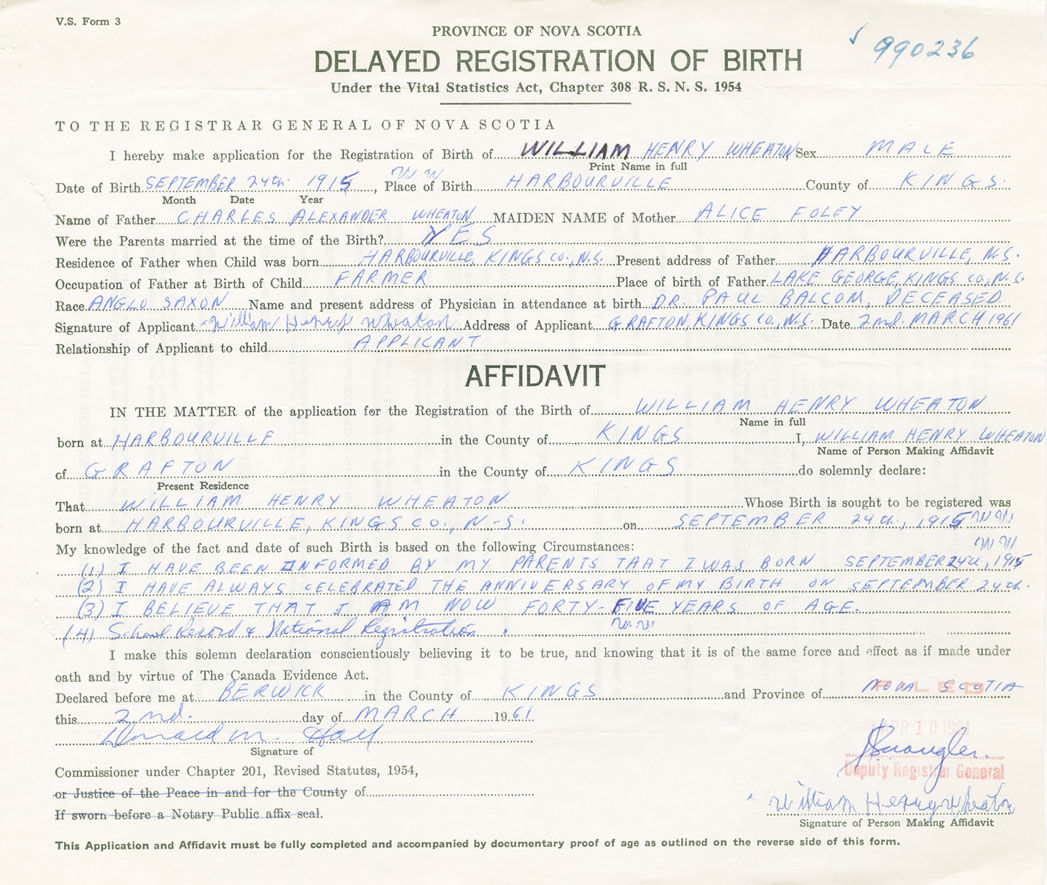 V.S. Form 3
PROVINCE OF NOVA SCOTIA
✓ 990236
DELAYED REGISTRATION OF BIRTH
Under the Vital Statistics Act, Chapter 308 R. S. N. S. 1954
TO THE REGISTRAR GENERAL OF NOVA SCOTIA
I hereby make application for the Registration of Birth of WILLIAM HENRY WHEATON Sex MALE
Print Name in full
Date of Birth SEPTEMBER 24th 1915, Place of Birth HARBOURVILLE County of KINGS.
Month Date Year
Name of Father CHARLES ALEXANDER WHEATON MAIDEN NAME of Mother ALICE FOLEY
Were the Parents married at the time of the Birth? YES
Residence of Father when Child was born HARBOURVILLE, KINGS CO., N.S. Present address of Father HARBOURVILLE, N.S.
Occupation of Father at Birth of Child FARMER Place of birth of Father LAKE GEORGE, KINGS CO., N.S.
Race ANGLO SAXON Name and present address of Physician in attendance at birth DR. PAUL BALCOM, DECEASED
Signature of Applicant William Henry Wheaton Address of Applicant GRAFTON, KINGS CO., N.S. Date 2nd. MARCH 1961
Relationship of Applicant to child APPLICANT
AFFIDAVIT
IN THE MATTER of the application for the Registration of the Birth of WILLIAM HENRY WHEATON
Name in full
born at HARBOURVILLE in the County of KINGS I, WILLIAM HENRY WHEATON
Name of Person Making Affidavit
of GRAFTON in the County of KINGS do solemnly declare:
Present Residence
That WILLIAM HENRY WHEATON Whose Birth is sought to be registered was
born at HARBOURVILLE, KINGS CO., N.S. on SEPTEMBER 24th, 1915
My knowledge of the fact and date of such Birth is based on the following Circumstances:
(1) I HAVE BEEN INFORMED BY MY PARENTS THAT I WAS BORN SEPTEMBER 24th, 1915
(2) I HAVE ALWAYS CELEBRATED THE ANNIVERSARY OF MY BIRTH ON SEPTEMBER 24th.
(3) I BELIEVE THAT I AM NOW FORTY-FIVE YEARS OF AGE.
(4) School Record & National Registration.
I make this solemn declaration conscientiously believing it to be true, and knowing that it is of the same force and effect as if made under
oath and by virtue of The Canada Evidence Act.
Declared before me at BERWICK in the County of KINGS and Province of NOVA SCOTIA
this 2nd. day of MARCH 1961
Donald M. Hall
Signature of
Commissioner under Chapter 201, Revised Statutes, 1954,
or Justice of the Peace in and for the County of
If sworn before a Notary Public affix seal.
FILED
APR 10 1961
Deputy Registrar General
William Henry Wheaton
Signature of Person Making Affidavit
This Application and Affidavit must be fully completed and accompanied by documentary proof of age as outlined on the reverse side of this form.